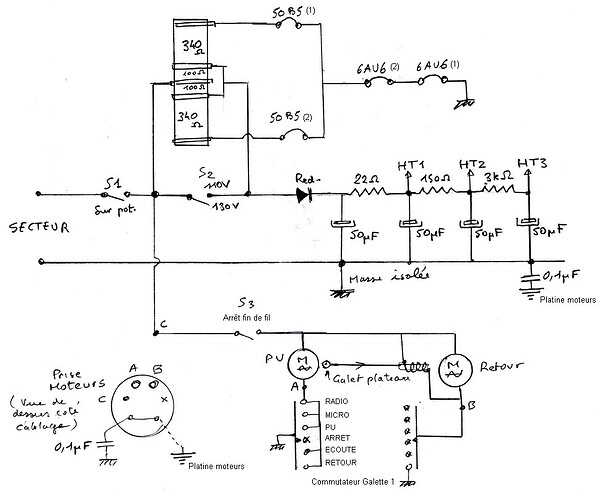 50 B5 (1)
340 Ω
100Ω
100Ω
340 Ω
6AU6 (2)
6AU6 (1)
50 B5 (2)
S1
Sur pot.
S2
110V
130V
Red.
22Ω
HT1
150Ω
HT2
3kΩ
HT3
SECTEUR
50µF
50µF
50µF
50µF
Masse isolée
0,1µF
Platine moteurs
C
S3
Arrêt fin de fil
PU
M
Galet plateau
M
Retour
A
B
Prise
Moteurs
(Vue de
dessus coté
câblage)
A
B
C
x
0,1µF
Platine moteurs
RADIO
MICRO
PU
ARRET
ECOUTE
RETOUR
Commutateur Galette 1